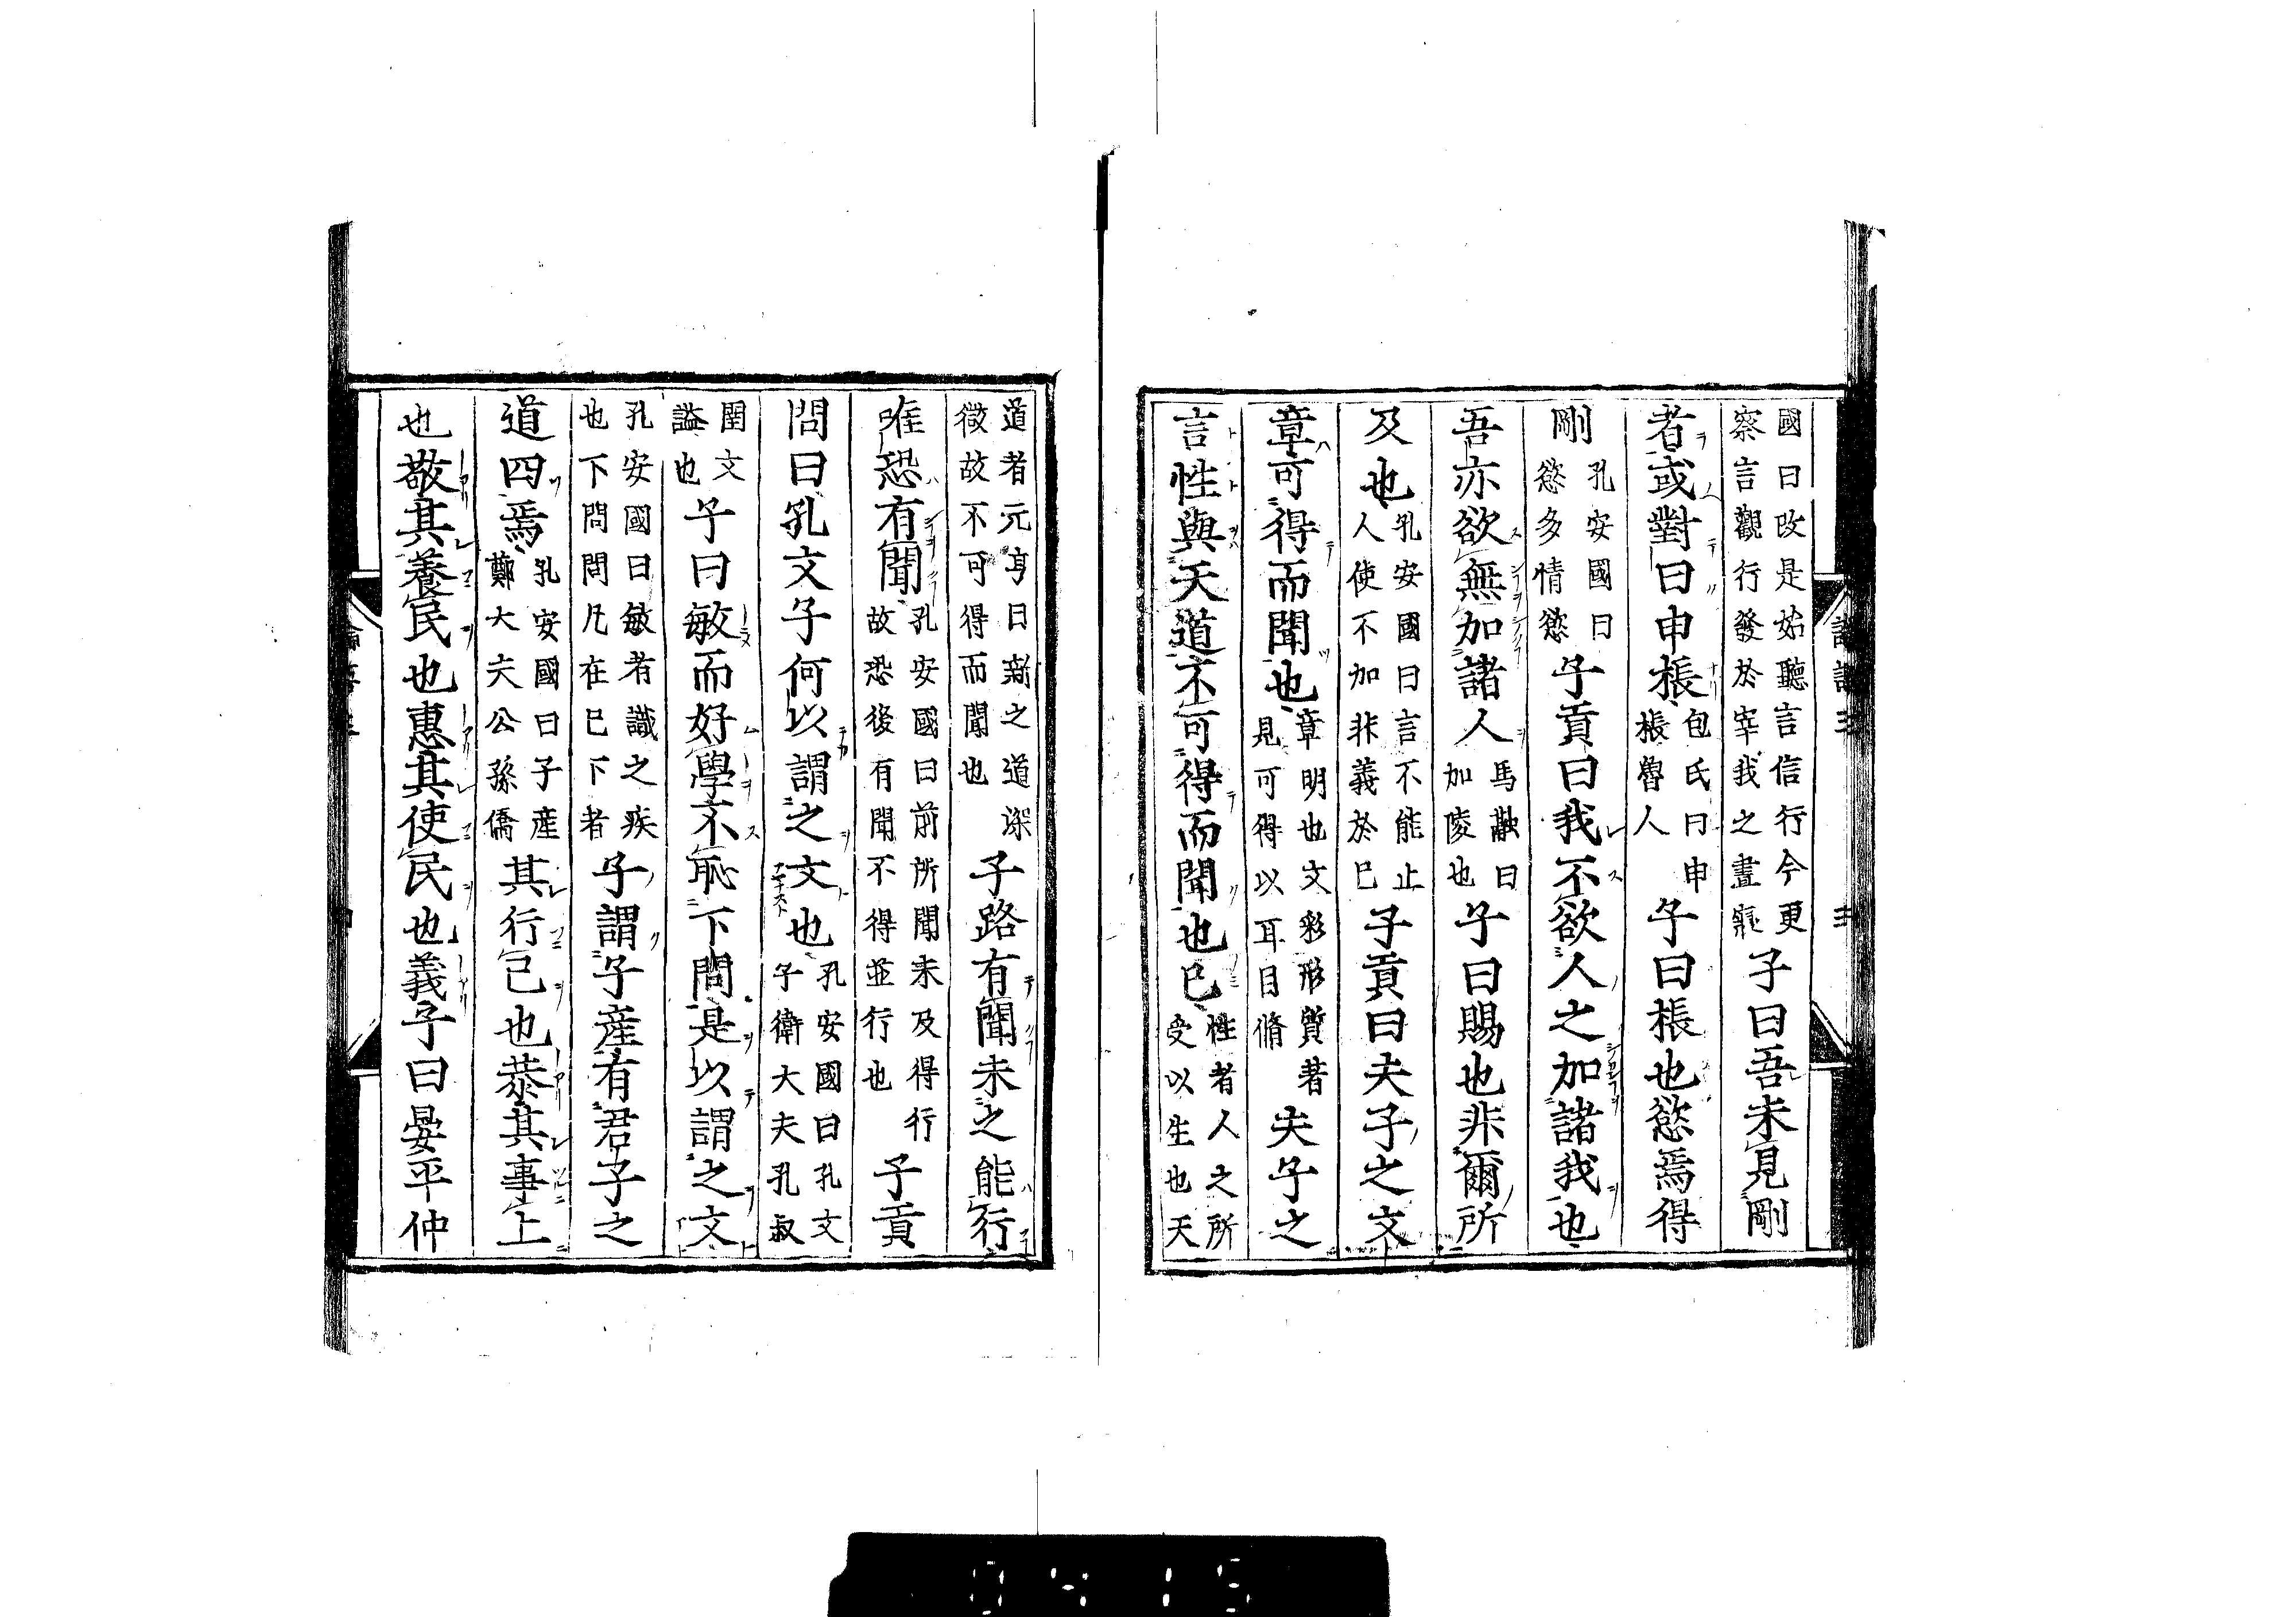 國曰改是始聽言信行今更
察言觀行發於宰我之晝寢
子曰吾未見剛
者或對曰申棖
包氏曰申
棖魯人
子曰棖也慾焉得
剛
孔安國曰
慾多情慾
子貢曰我不欲人之加諸我也
吾亦欲無加諸人
馬融曰
加陵也
子曰賜也非爾所
及也
孔安國曰言不能止
人使不加非義於己
子貢曰夫子之文
章可得而聞也
章明也文彩形質著
見可得以耳目脩
夫子之
言性與天道不可得而聞也已
性者人之所
受以生也天
道者元亨日新之道深
微故不可得而聞也
子路有聞未之能行
唯恐有聞
孔安國曰前所聞未及得行
故恐後有聞不得並行也
子貢
問曰孔文子何以謂之文也
孔安國曰孔文
子衛大夫孔叔
圉文
謚也
子曰敏而好學不恥下問是以謂之文
孔安國曰敏者識之疾
也下問問凡在己下者
子謂子產有君子之
道四焉
孔安國曰子產
鄭大夫公孫僑
其行己也恭其事上
也敬其養民也惠其使民也義子曰晏平仲